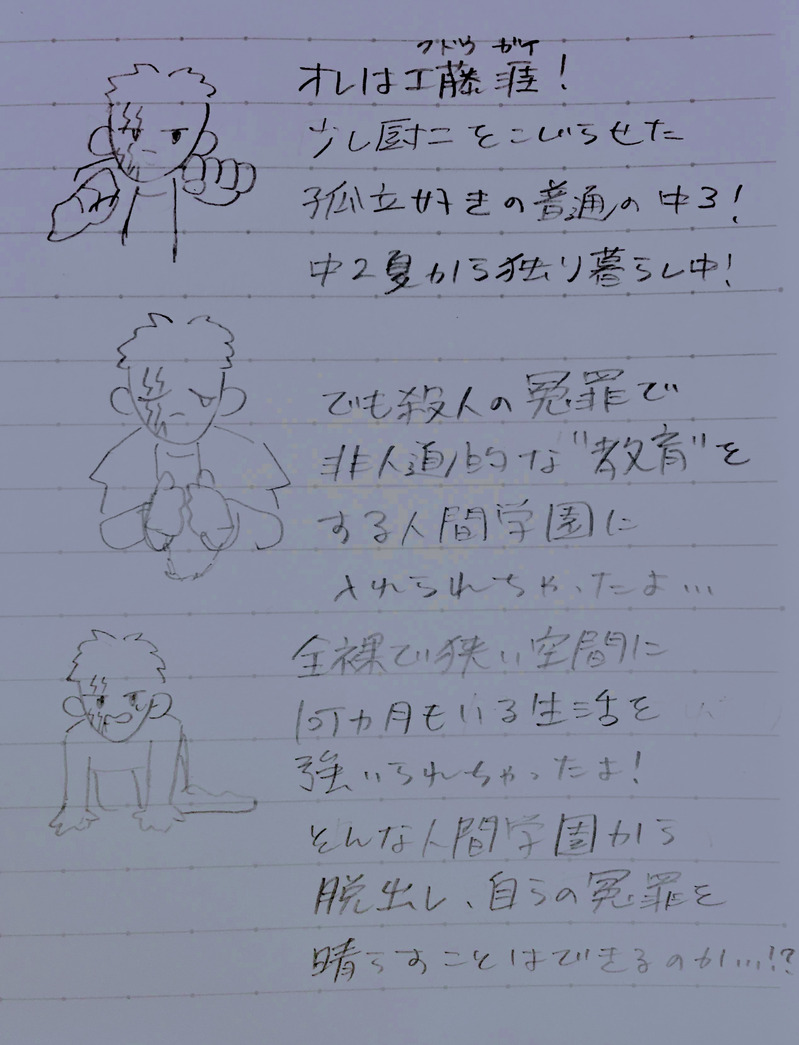 クドウ ガイ
オレは工藤涯!
少し厨二をこじらせた
孤立好きの普通の中3!
中2夏から独り暮らし中!
でも殺人の冤罪で
非人道的な"教育"を
する人間学園に
入れられちゃったよ…
全裸で狭い空間に
何カ月もいる生活を
強いられちゃったよ!
そんな人間学園から
脱出し、自らの冤罪を
晴らすことはできるのか…!?